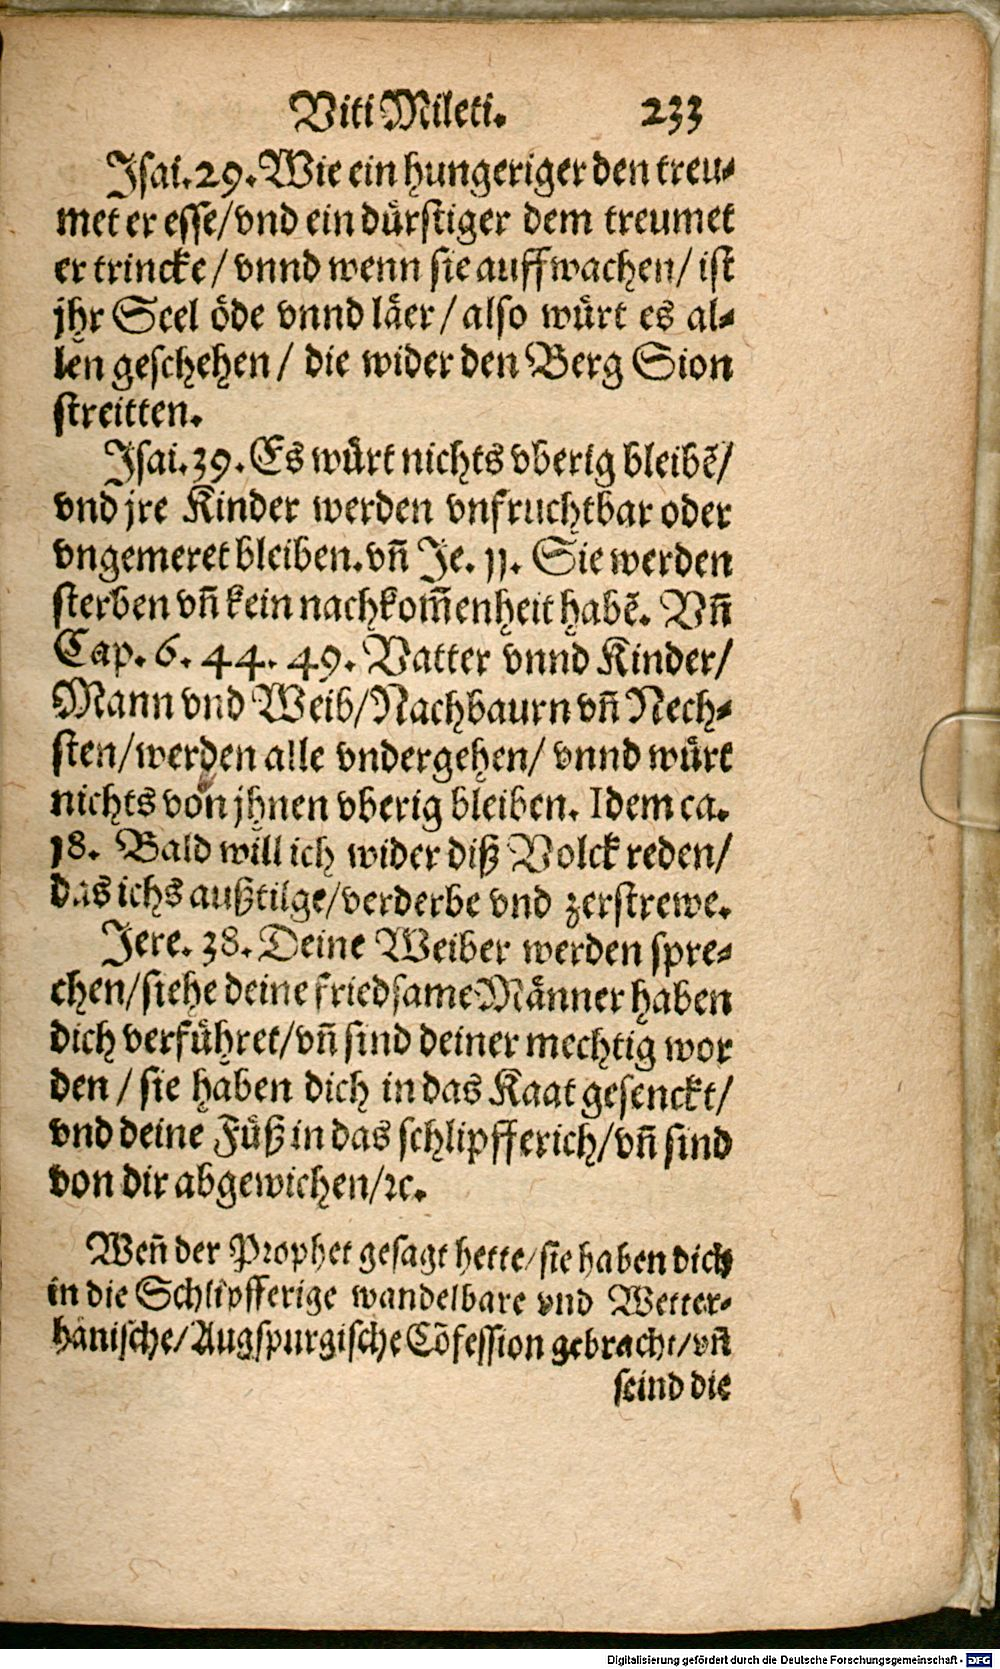 Viti Mileti. 233
Jsai. 29. Wie ein hungeriger den treu-
met er esse/ vnd ein dürstiger dem treumet
er trincke/ vnnd wenn sie auffwachen/ ist
jhr Seel öde vnnd läer/ also würt es al-
len geschehen/ die wider den Berg Sion
streitten.
Jsai. 39. Es würt nichts vberig bleibẽ/
vnd jre Kinder werden vnfruchtbar oder
vngemeret bleiben. vñ Je. 11. Sie werden
sterben vñ kein nachkom̃enheit habẽ. Vñ
Cap. 6. 44. 49. Vatter vnnd Kinder/
Mann vnd Weib/ Nachbaurn vñ Nech-
sten/ werden alle vndergehen/ vnnd würt
nichts von jhnen vberig bleiben. Idem ca.
18. Bald will ich wider diß Volck reden/
das ichs außtilge/ verderbe vnd zerstrewe.
Jere. 38. Deine Weiber werden spre-
chen/ siehe deine friedsame Männer haben
dich verführet/ vñ sind deiner mechtig wor
den/ sie haben dich in das Kaat gesenckt/
vnd deine Füß in das schlipfferich/ vñ sind
von dir abgewichen/ ꝛc.
Weñ der Prophet gesagt hette/ sie haben dich
in die Schlipfferige wandelbare vnd Wetter-
hänische/ Augspurgische Cõfession gebracht/ vñ
seind die
Digitalisierung gefördert durch die Deutsche Forschungsgemeinschaft - DFG